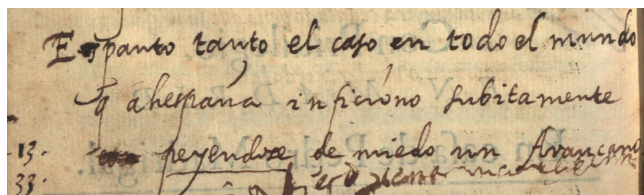 Espanto tanto el caso en todo el mundo
q̃ a hespaña inficiono subitamente
.13. peyendose de miedo un Arancano
33.